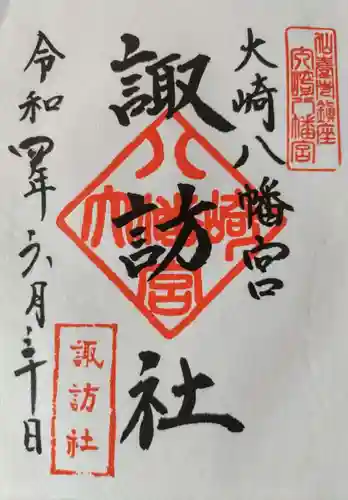 仙臺市鎮座
大崎八幡宮
大崎八幡宮
諏訪社
大崎八幡宮
令和四年六月三十日
諏訪社